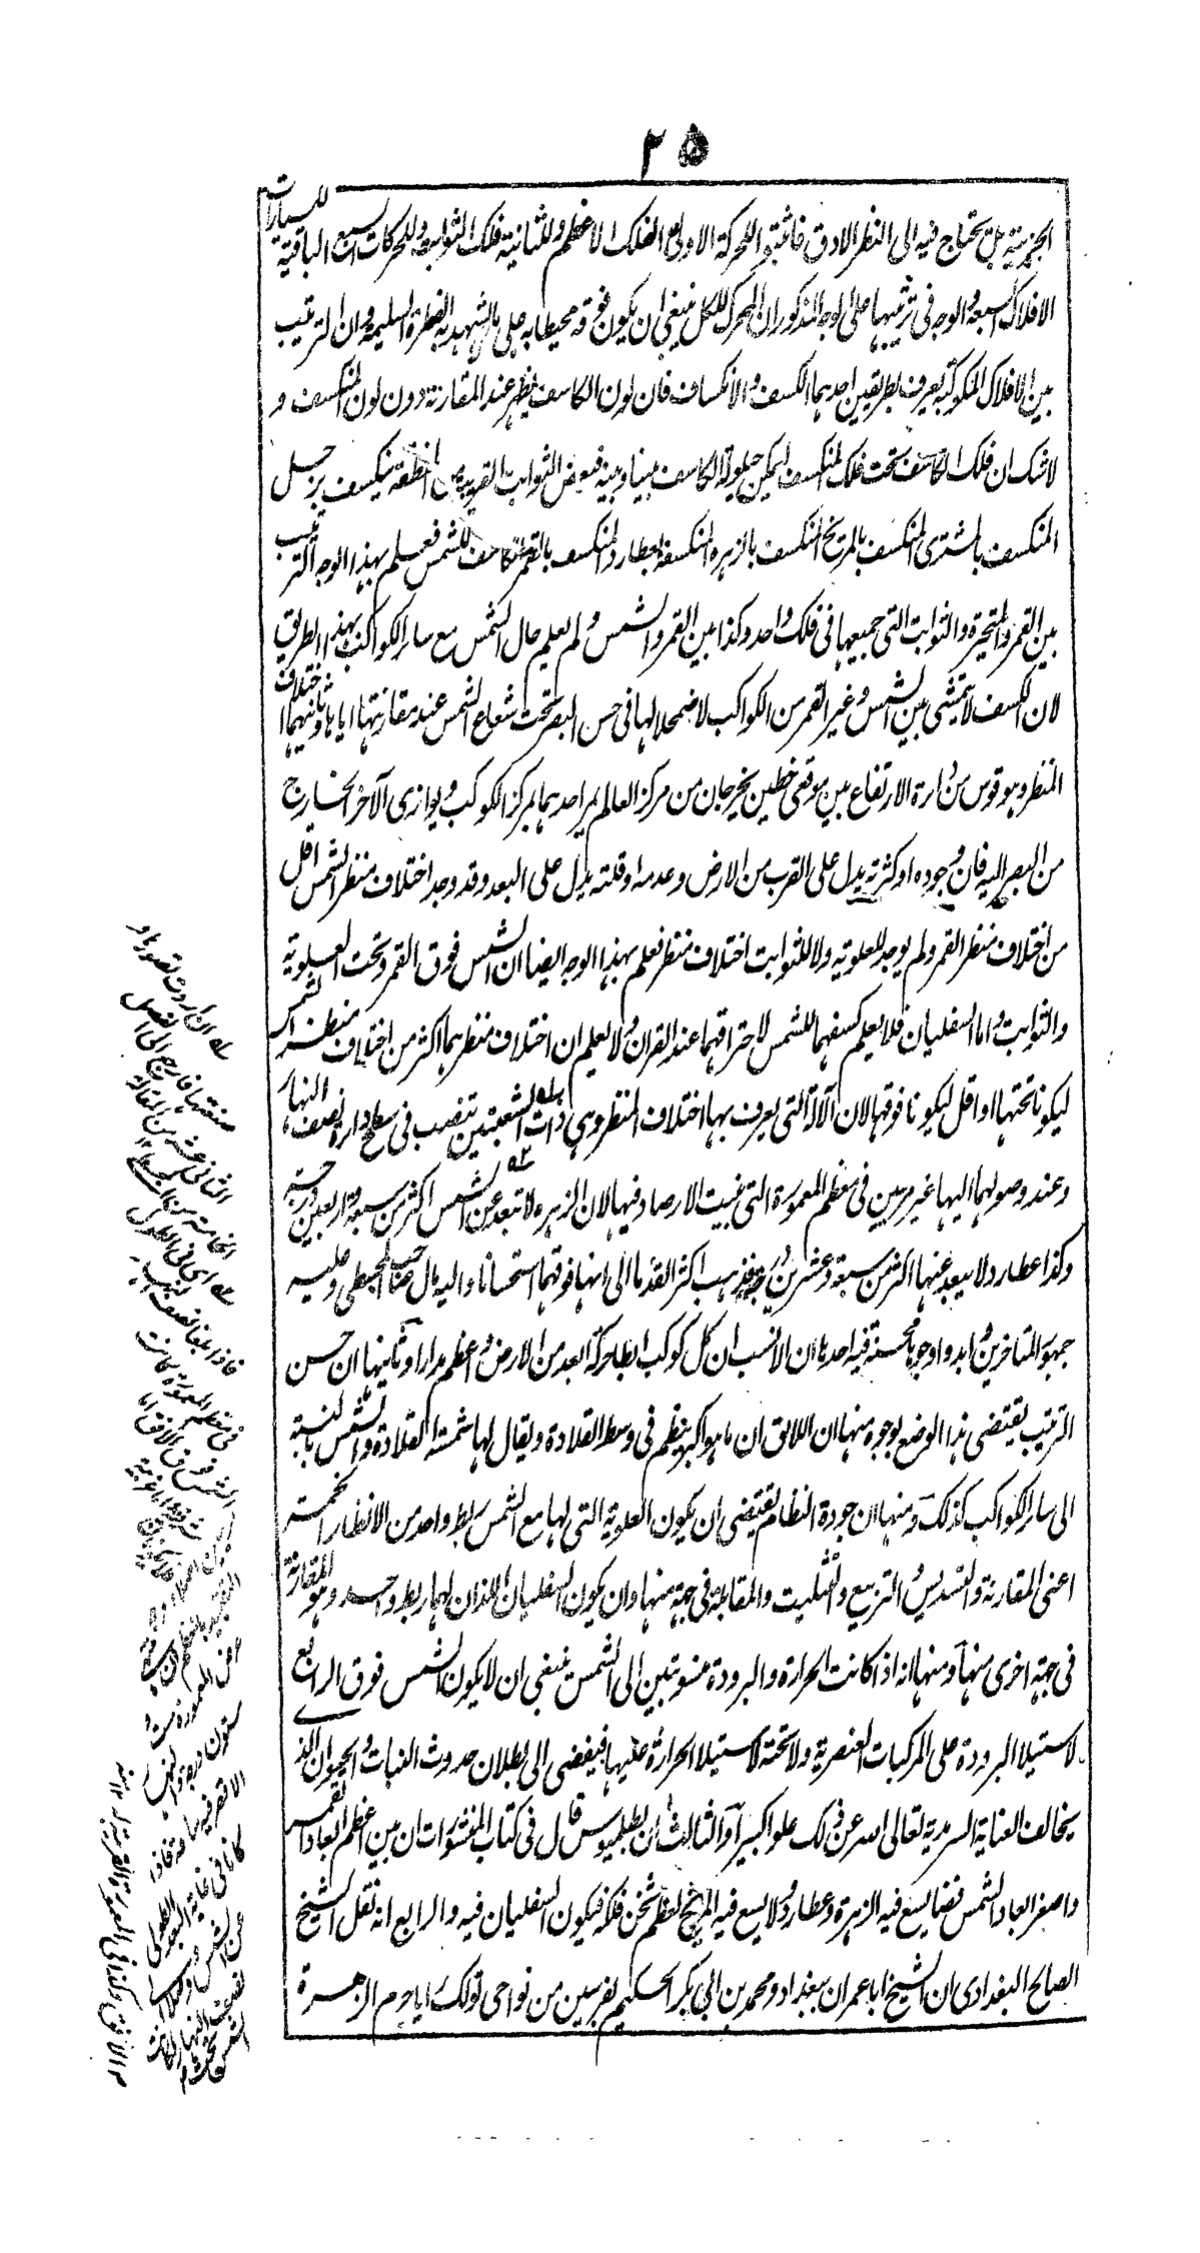 ٢٥
الجزئية بل يحتاج فيه الى النظر الادق فاثبتوا للحركة الاولى الفلك الاعظم وللثانية فلك الثوابت وللحركات السبع الباقية للسيارات
الافلاك السبعة والوجه فى ترتيبها على الوجه المذكور ان المحرك للكل ينبغى ان يكون فوقه محيطا به على ما يشهد به الفطرة السليمة وان الترتيب
بين الافلاك المكوكبة يعرف بطريقين احدهما الكسف والانكساف فان لون الكاسف يظهر عند المقارنة دون لون المنكسف و
لا شك ان فلك الكاسف تحت فلك المنكسف ليمكن حيلولة الكاسف بيننا وبينه فبعض الثوابت القريبة من المنطقة ينكسف بزحل
المنكسف بالمشترى المنكسف بالمريخ المنكسف بالزهرة المنكسفة بعطارد المنكسف بالقمر الكاسف للشمس فعلم بهذا الوجه الترتيب
بين القمر والمتحيرة والثوابت التى جميعها فى فلك واحد وكذا بين القمر والشمس ولم يعلم حال الشمس مع سائر الكواكب بهذا الطريق
لان الكسف لا يتمشى بين الشمس وغير القمر من الكواكب لاضمحلالها فى حس البصر تحت شعاع الشمس عند مقارنتها اياها وثانيهما اختلاف
المنظر وهو قوس من دائرة الارتفاع بين موقعى خطين يخرجان من مركز العالم يمر احدهما بمركز الكوكب ويوازى الآخر الخارج
من البصر اليه فان وجوده او كثرته يدل على القرب من الارض وعدمه او قلته يدل على البعد وقد وجد اختلاف منظر الشمس اقل
من اختلاف منظر القمر ولم يوجد للعلوية ولا للثوابت اختلاف منظر فعلم بهذا الوجه ايضا ان الشمس فوق القمر وتحت العلوية
والثوابت واما السفليان فلا يعلم كسفهما للشمس لاحتراقهما عند القران ولا يعلم ان اختلاف منظريهما اكثر من اختلاف منظر الشمس
ليكونا تحتها او اقل ليكونا فوقها لان الآلة التى يعرف بها اختلاف المنظر وهى ذات الشعبتين تنصب فى سطح دائرة نصف النهار
وعند وصولهما اليها غير مرئيين فى معظم المعمورة التى بنيت الارصاد فيها لان الزهرة لا تبعد عن الشمس اكثر من سبعة واربعين درجة
وكذا عطارد لا يبعد عنها اكثر من سبعة وعشرين درجة فذهب اكثر القدماء الى انها فوقهما استحسانا واليه مال صاحب المجسطى وعليه
جمهور المتاخرين وابدوا وجوها محسنة فيه احدها ان الانسب ان كل كوكب ابطأ حركة ابعد من الارض واعظم مدارا وثانيها ان حسن
الترتيب يقتضى هذا الوضع لوجوه منها ان اللائق ان ما هو اكبر ينظم فى وسط القلادة ويقال لها شمسة القلادة والشمس بالنسبة
الى سائر الكواكب كذلك ومنها ان جودة النظام تقتضى ان يكون العلوية التى لها مع الشمس ربط واحد من الانظار الخمسة
اعنى المقارنة والتسديس والتربيع والتثليث والمقابلة فى جهة منها وان يكون السفليان اللذان لهما ربط واحد وهو المقارنة
فى جهة اخرى منها ومنها انه اذا كانت الحرارة والبرودة منسوبتين الى الشمس ينبغى ان لا يكون الشمس فوق الرابع
لاستيلاء البرودة على المركبات العنصرية ولا تحته لاستيلاء الحرارة عليها فيفضى الى بطلان حدوث النبات والحيوان الذى
يخالف العناية السرمدية تعالى الله عن ذلك علوا كبيرا والثالث ان بطلميوس قال فى كتاب المنشورات ان بين اعظم ابعاد القمر
واصغر ابعاد الشمس فضاء يسع فيه الزهرة وعطارد ولا يسع فيه المريخ لعظم ثخن فلكه فيكون السفليان فيه والرابع انه نقل الشيخ
الصالح البغدادى ان الشيخ ابا عمران ببغداد ومحمد بن ابى بكر الحكيم بفرسين من نواحى تولك رايا جرم الزهرة
ان اردت تصورها و
صنعتها فارجع الى الفصل
الثانى عشر من المقالة
الخامسة من المجسطى